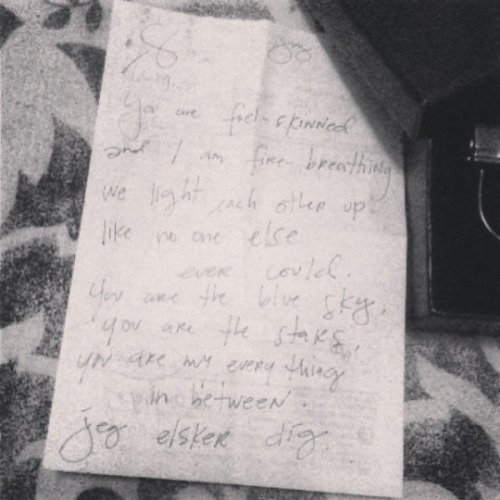 You are fuel-skinned
and I am fire-breathing
we light each other up
like no one else
ever could.
You are the blue sky,
you are the stars,
you are my everything
in between.
jeg elsker dig.